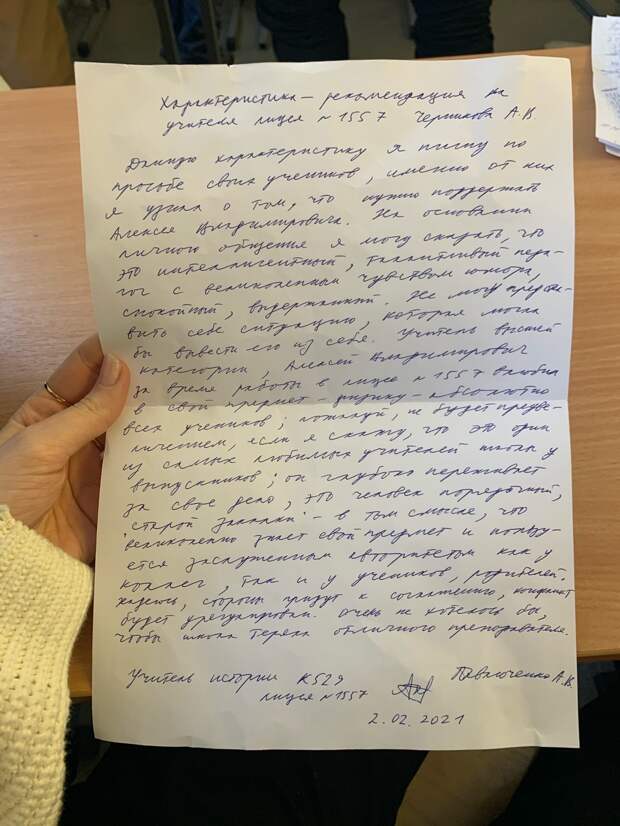 Характеристика – рекомендация на
учителя лицея № 1557 Черникова А.В.
Данную характеристику я пишу по
просьбе своих учеников, именно от них
я узнала о том, что нужно поддержать
Алексея Владимировича. На основании
личного общения я могу сказать, что
это интеллигентный, талантливый педа-
гог с великолепным чувством юмора,
спокойный, выдержанный. Не могу предста-
вить себе ситуацию, которая могла
бы вывести его из себя. Учитель высшей
категории, Алексей Владимирович
за время работы в лицее № 1557 влюбил
в свой предмет – физику – абсолютно
всех учеников; пожалуй, не будет преуве-
личением, если я скажу, что это один
из самых любимых учителей школы у
выпускников; он глубоко переживает
за свое дело, это человек порядочный,
"старой закалки" – в том смысле, что
великолепно знает свой предмет и пользу-
ется заслуженным авторитетом как у
коллег, так и у учеников, родителей.
Надеюсь, стороны придут к соглашению, конфликт
будет урегулирован. Очень не хотелось бы,
чтобы школа теряла отличного преподавателя.
Учитель истории К529
лицея № 1557
А.В.
2.02.2021